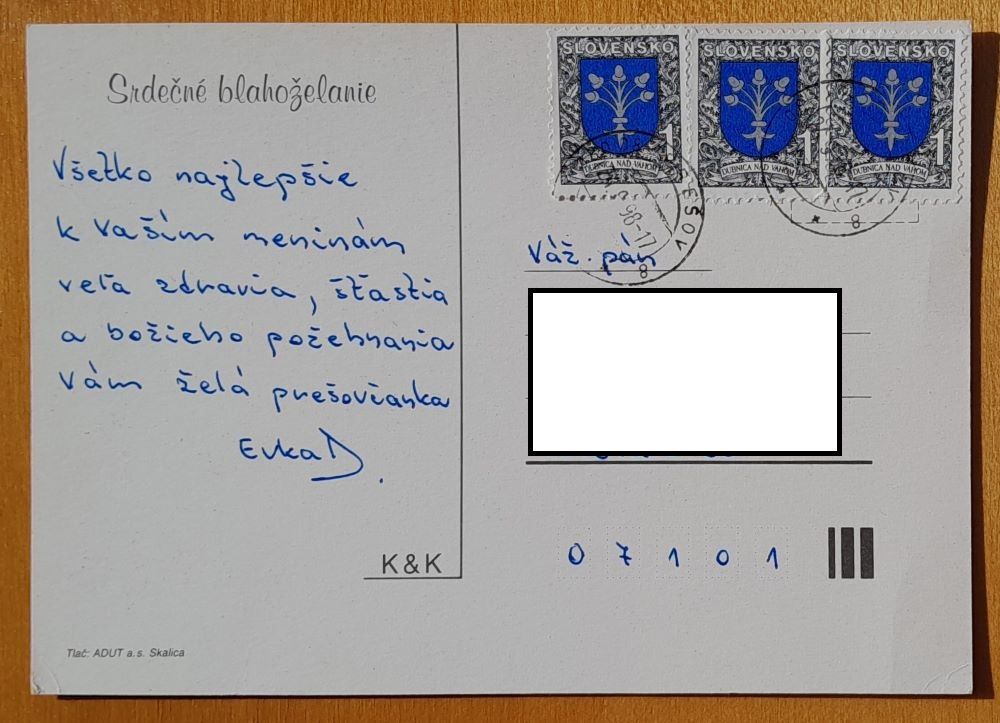 Srdečné blahoželanie
Všetko najlepšie
k vašim meninám
veľa zdravia, šťastia
a božieho požehnania
Vám želá prešovčanka
EvkaD.
K&K
Tlač: ADUT a.s. Skalica
SLOVENSKO
DUBNICA NAD VÁHOM
1
SLOVENSKO
DUBNICA NAD VÁHOM
1
SLOVENSKO
DUBNICA NAD VÁHOM
1
98-17
8
8
Váž. pán
0 7 1 0 1